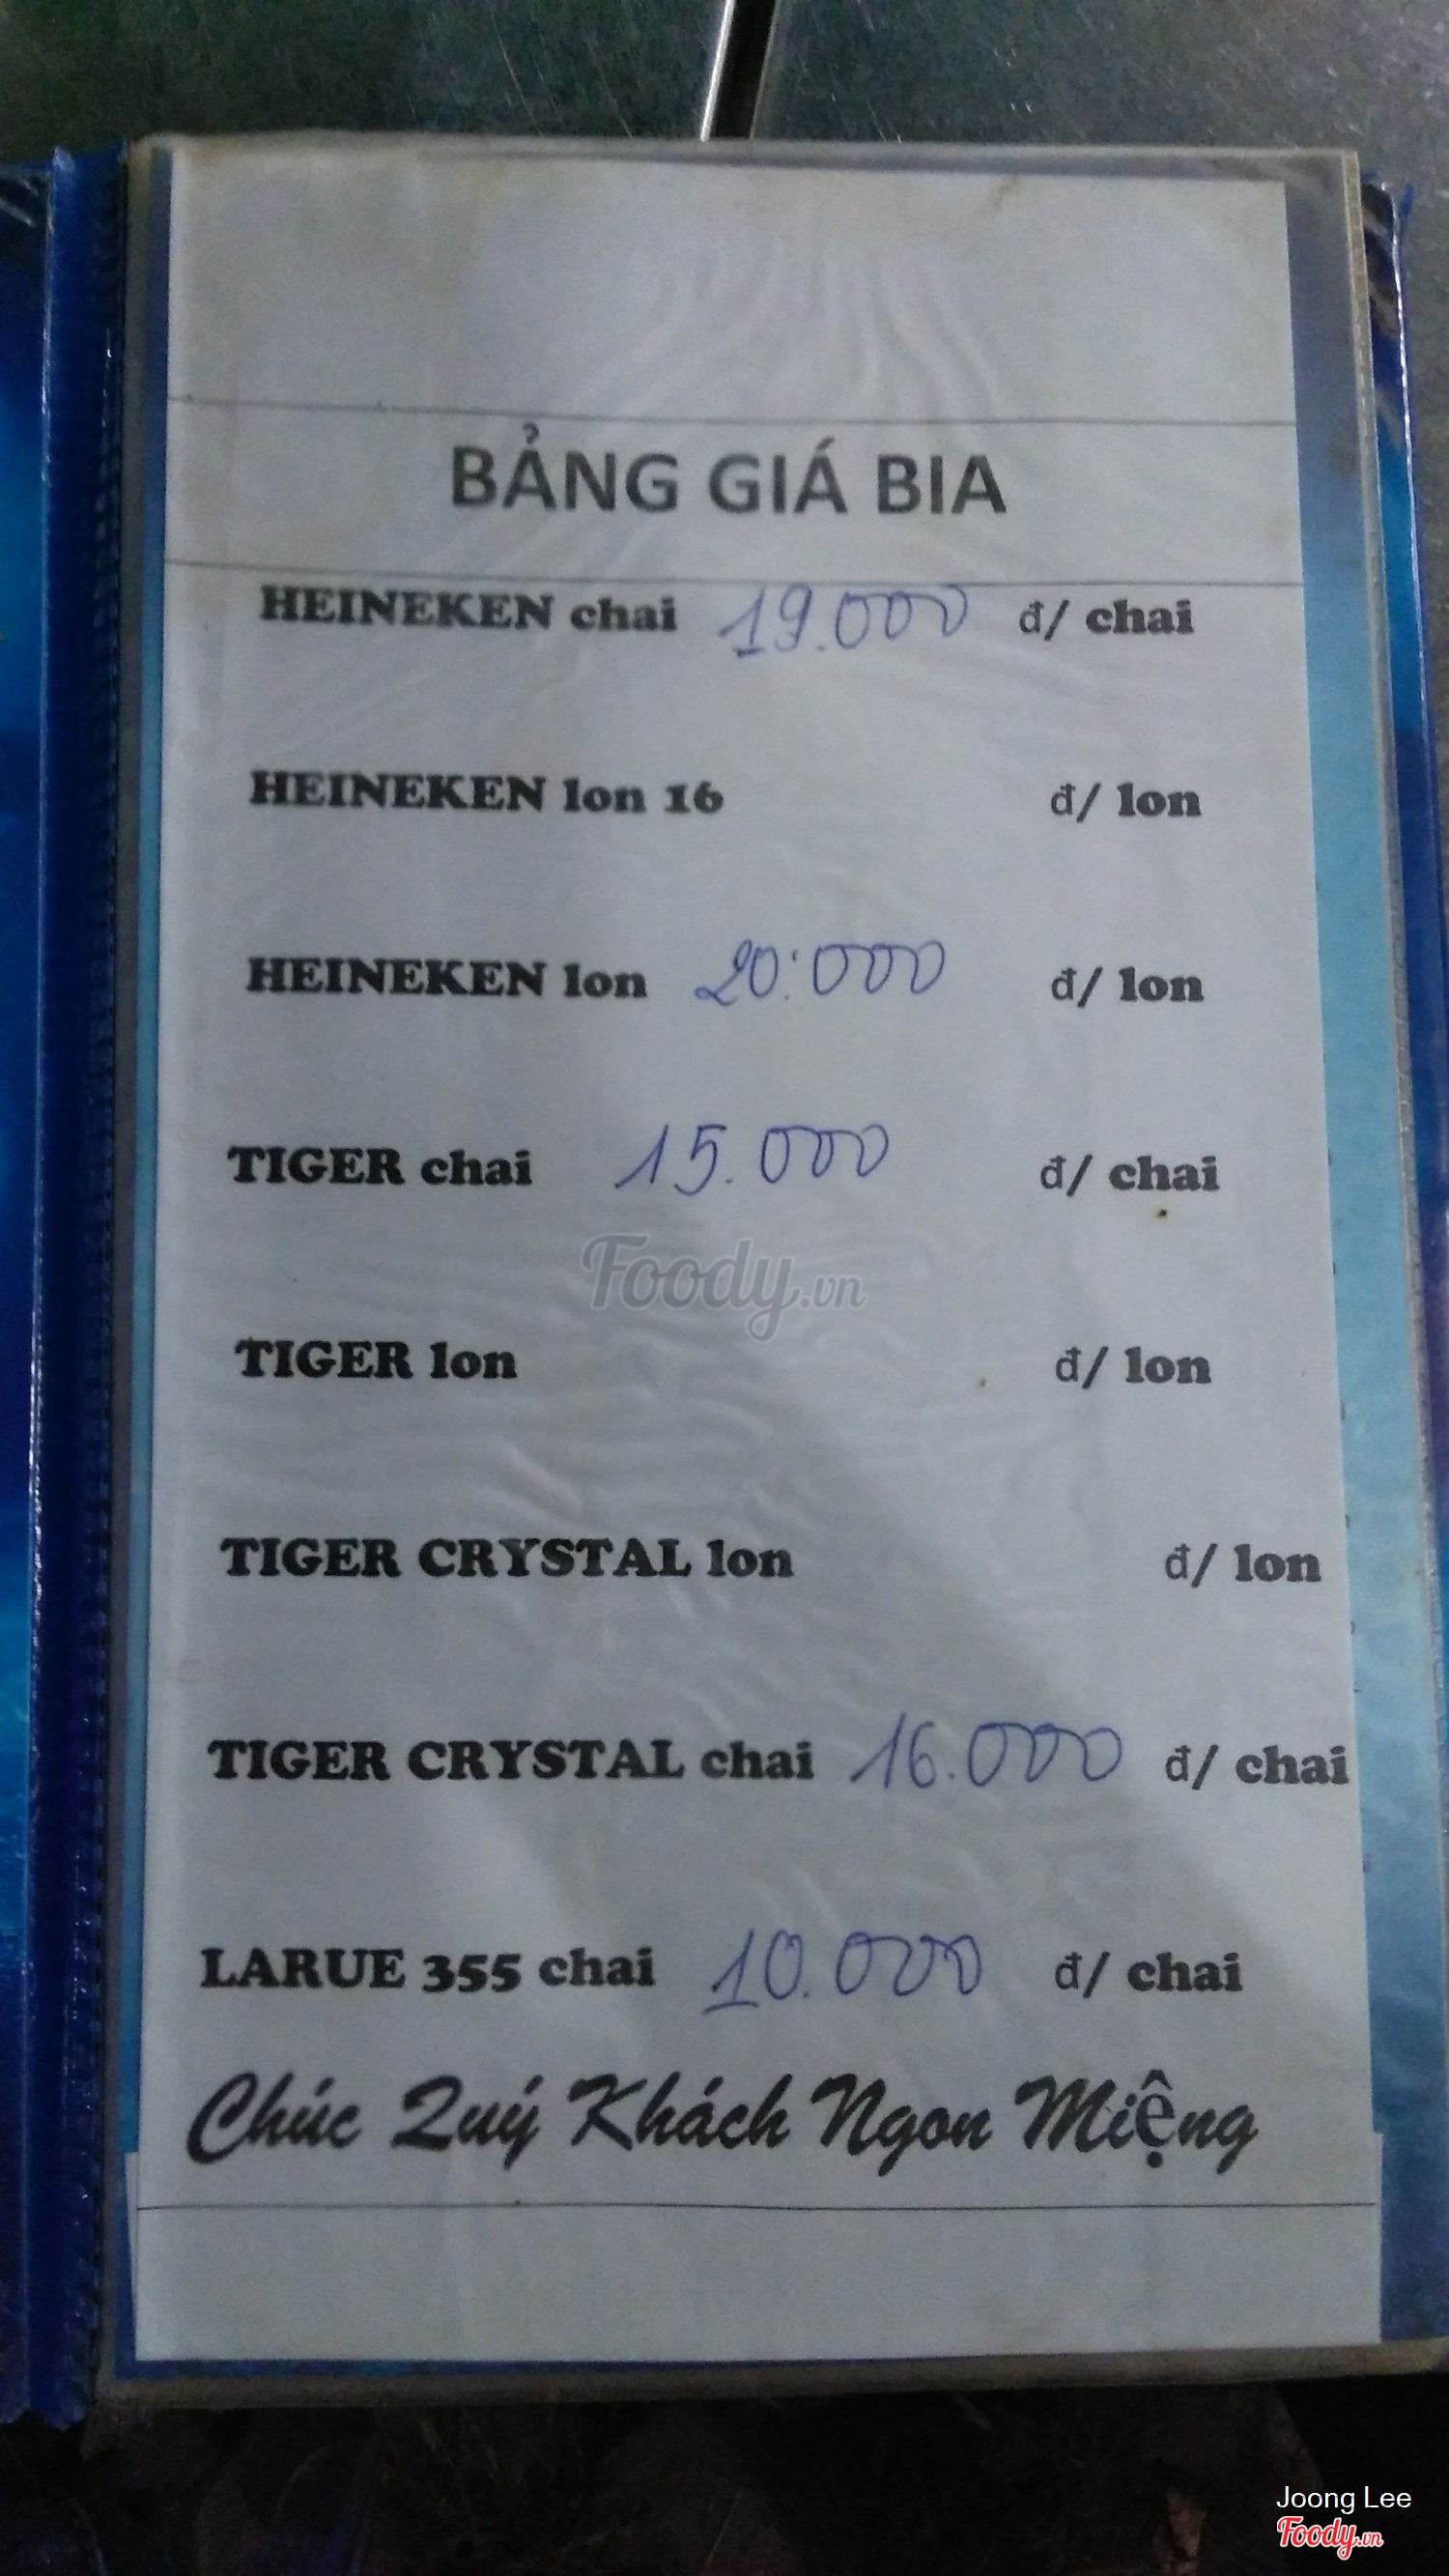 BẢNG GIÁ BIA
HEINEKEN chai 19.000 đ/ chai
HEINEKEN lon 16 đ/ lon
HEINEKEN lon 20.000 đ/ lon
TIGER chai 15.000 đ/ chai
Foody.vn
TIGER lon đ/ lon
TIGER CRYSTAL lon đ/ lon
TIGER CRYSTAL chai 16.000 đ/ chai
LARUE 355 chai 10.000 đ/ chai
Chúc Quý Khách Ngon Miệng
Joong Lee
Foody.vn